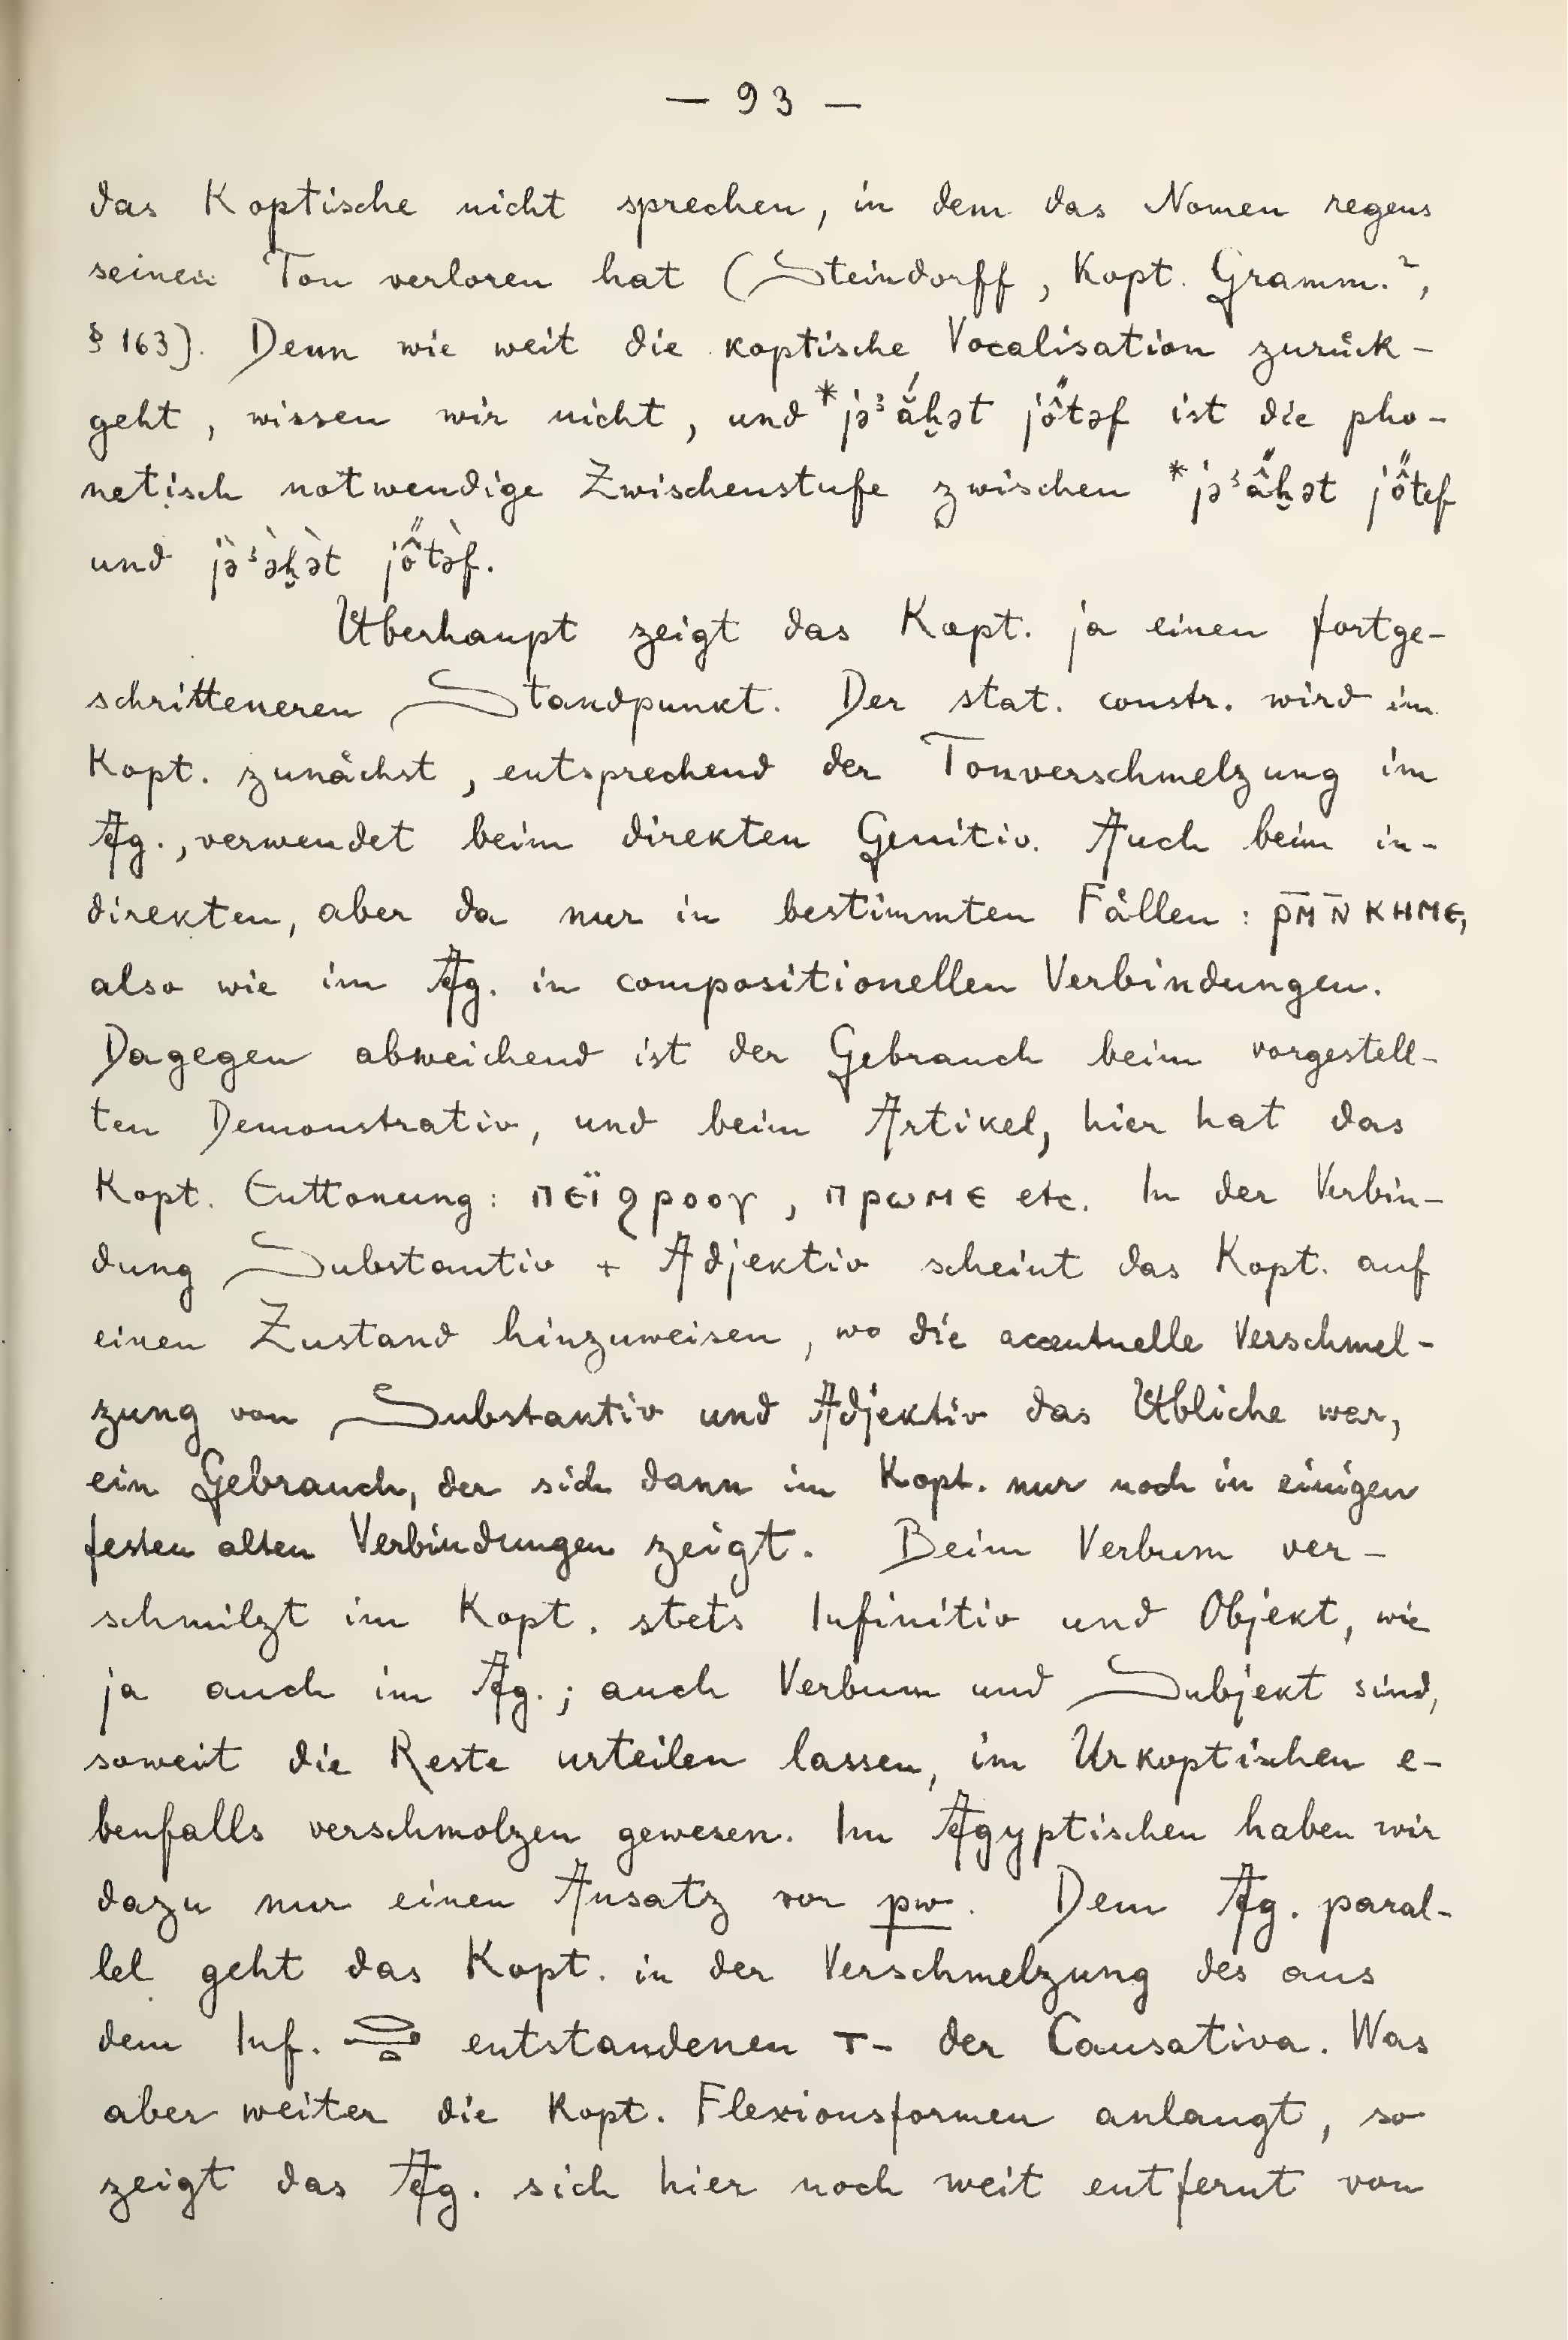 — 93 —
das Koptische nicht sprechen, in dem das Nomen regens
seinen Ton verloren hat (Steindorff, Kopt. Gramm.²,
§ 163). Denn wie weit die koptische Vocalisation zurück-
geht, wissen wir nicht, und *jəꜣắḫət jő̂təf ist die pho-
netisch notwendige Zwischenstufe zwischen *jəꜣả̂ḫət jő̂tef
und jə̀ꜣə̀ḫə̀t jő̂tə̀f.
Überhaupt zeigt das Kopt. ja einen fortge-
schritteneren Standpunkt. Der stat. constr. wird im
Kopt. zunächst, entsprechend der Tonverschmelzung im
Äg., verwendet beim direkten Genitiv. Auch beim in-
direkten, aber da nur in bestimmten Fällen: ⲣ̄ⲙⲛ̄ⲕⲏⲙⲉ,
also wie im Äg. in compositionellen Verbindungen.
Dagegen abweichend ist der Gebrauch beim vorgestell-
ten Demonstrativ, und beim Artikel, hier hat das
Kopt. Enttonung: ⲡⲉⲓ̈ϩⲣⲟⲟⲩ, ⲡⲣⲱⲙⲉ etc. In der Verbin-
dung Substantiv + Adjektiv scheint das Kopt. auf
einen Zustand hinzuweisen, wo die accentuelle Verschmel-
zung von Substantiv und Adjektiv das Übliche war,
ein Gebrauch, der sich dann im Kopt. nur noch in einigen
festen alten Verbindungen zeigt. Beim Verbum ver-
schmilzt im Kopt. stets Infinitiv und Objekt, wie
ja auch im Äg.; auch Verbum und Subjekt sind,
soweit die Reste urteilen lassen, im Urkoptischen e-
benfalls verschmolzen gewesen. Im Ägyptischen haben wir
dazu nur einen Ansatz vor pw. Dem Äg. paral-
lel geht das Kopt. in der Verschmelzung des aus
dem Inf. entstandenen ⲧ- der Causativa. Was
aber weiter die Kopt. Flexionsformen anlangt, so
zeigt das Äg. sich hier noch weit entfernt von